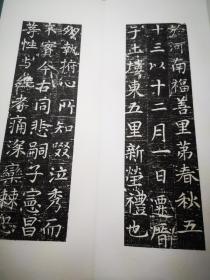 於河南福善里第春秋五
十三以十二月一日遷厝
于土塼東五里新塋禮也
幼執術心所知啜泣秀而
未實今古同悲嗣子憲昌
等性與經者痛深欒棘怨